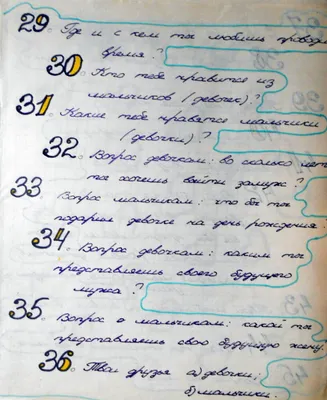 29. Где и с кем ты любишь проводи
время?
30. Кто тебе нравится из
мальчиков (девочек)?
31. Какие тебе нравятся мальчики
(девочки)?
32. Вопрос девочкам: во сколько лет
ты хочешь выйти замуж?
33. Вопрос мальчикам: что бы ты
подарил девочке на день рождения
34. Вопрос девочкам: каким ты
представляешь своего будущего
мужа?
35. Вопрос о мальчикам: какой ты
представляешь свою будущую жену.
36. Твои друзья а) девочки;
б) мальчики.